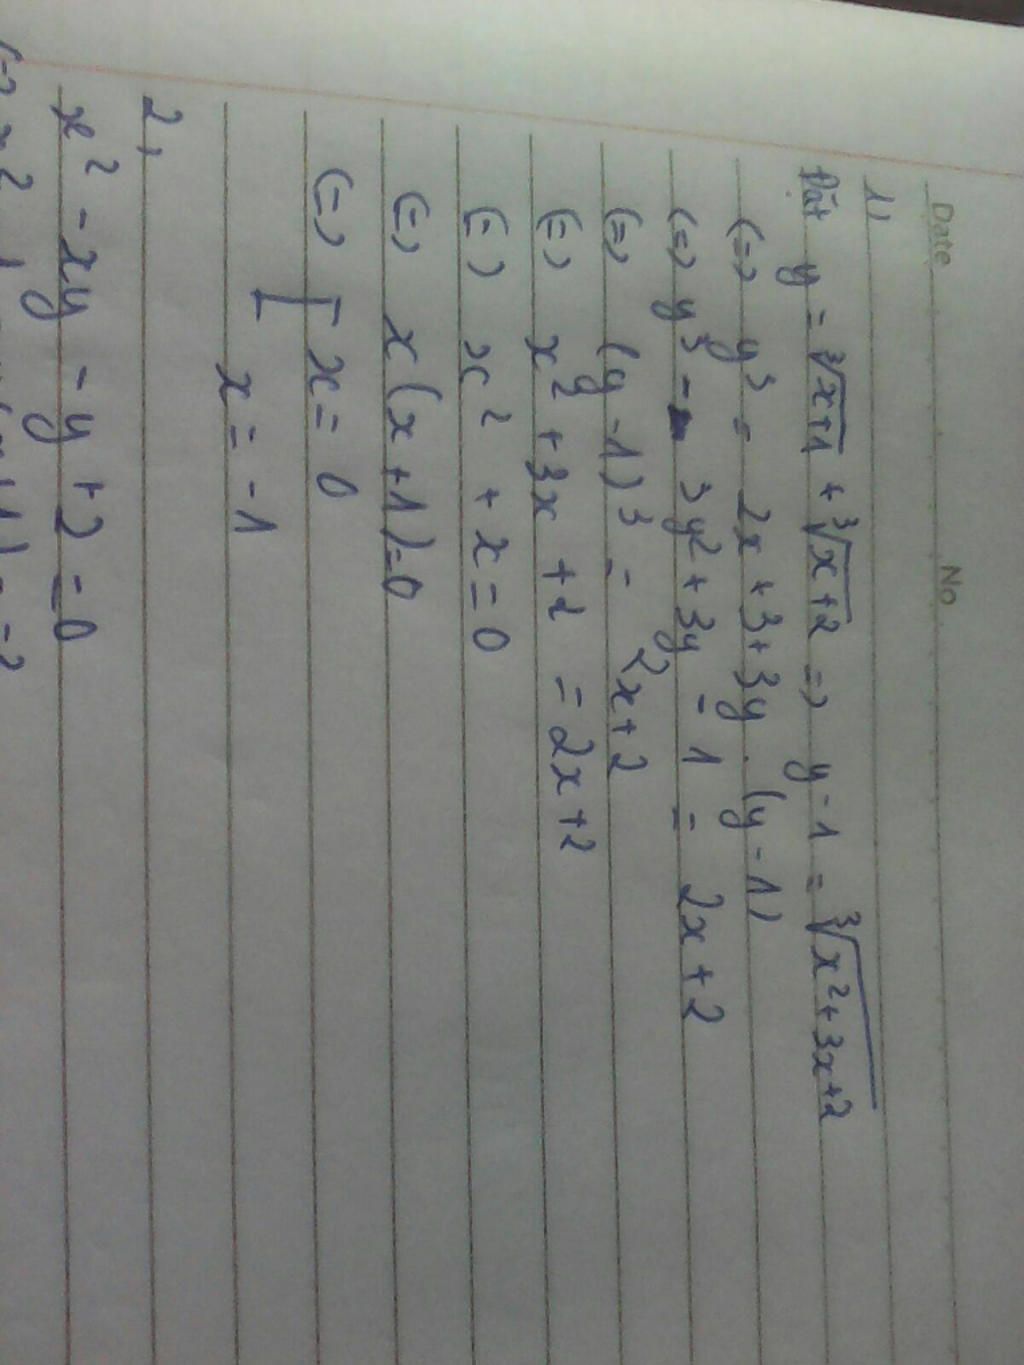 Date No
1,
Đặt y = ∛(x+1) + ∛(x+2) => y - 1 = ∛(x²+3x+2)
(=) y³ = 2x + 3 + 3y . (y - 1)
(=) y³ - 3y² + 3y - 1 = 2x + 2
(=) (y - 1)³ = 2x + 2
(=) x² + 3x + 2 = 2x + 2
(=) x² + x = 0
(=) x(x+1) = 0
(=) [ x = 0
x = -1
2,
x² - xy - y + 2 = 0